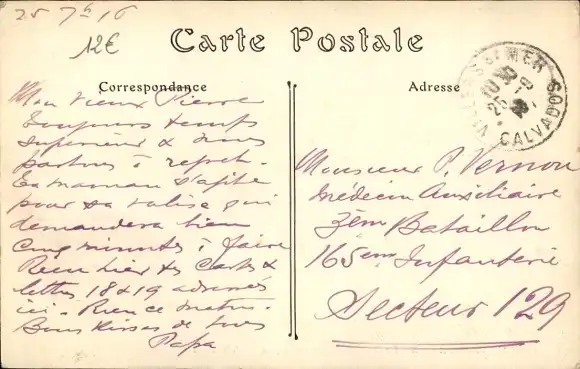 25 7bre 16
12€
Carte Postale
Correspondance
Adresse
Mon vieux Pierre
Toujours temps
superieur & nous
partons à regret.
Ta maman s'agite
pour sa valise qui
demandera bien
cinq minutes à faire
Recu hier tes cartes &
lettres 18 & 19 adressées
ici. Rien ce matin.
Bons kisses de tous
Papa
S/ MER
10
25 - 9
CALVADOS
Monsieur P. Vernou
Médecin Auxiliaire
3ème Bataillon
165em Infanterie
Secteur 129